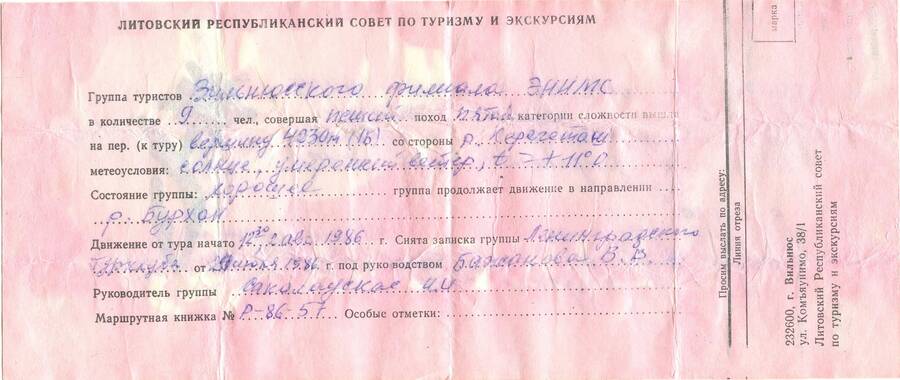 ЛИТОВСКИЙ РЕСПУБЛИКАНСКИЙ СОВЕТ ПО ТУРИЗМУ И ЭКСКУРСИЯМ
Группа туристов Вильнюсского филиала ЭНИМС
в количестве 9 чел., совершая пеший поход пятой категории сложности вышла
на пер. (к туру) вершину 4930м (1Б) со стороны р.
метеоусловия: солнце, умеренный ветер, t = +11°C
Состояние группы: хорошее группа продолжает движение в направлении
р. Бурхан
Движение от тура начато 12³⁰ 2 авг 1986 г. Снята записка группы Ленинградского
турклуба от 29 июля 1986 г. под руководством Бажанова В.В.
Руководитель группы Сакалаускас
Маршрутная книжка № Р-86-5Т Особые отметки:
марка
Просим выслать по адресу:
Линия отреза
232600, г. Вильнюс
ул. Комъяунимо, 38/1
Литовский Республиканский совет
по туризму и экскурсиям